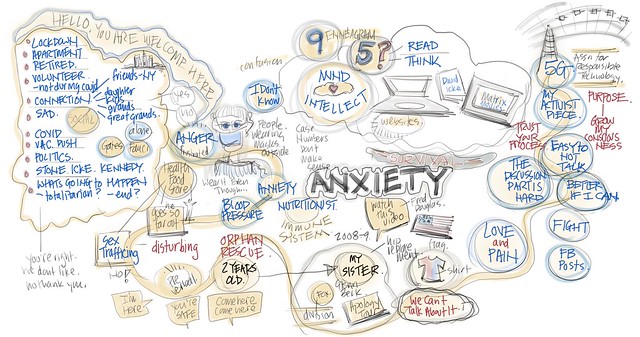 HELLO, YOU ARE WELCOME HERE
LOCKDOWN
APARTMENT
RETIRED.
VOLUNTEER
- not during covid
CONNECTION
SAD.
COVID
VAC. PUSH
POLITICS.
STONE. ICKE. KENNEDY.
WHATS GOING to HAPPEN
- totalitarian? - end?
friends - NY
daughter
kids
grands
great grands.
social
alone
Gates
Fauci
yes
no
You're right -
not dont like.
no thank you.
ANGER
Health
Food
Store
goes so
far out
Sex
Trafficking
NO!
disturbing
PR
email
I'm
Here
You're
SAFE
Come here
come here
ORPHAN
RESCUE.
2 YEARS
OLD.
confusion
I Don't
Know
People
wearing
masks
outside
Case
Numbers
don't
make
sense
Wear it Even Though...
BLOOD
PRESSURE
ANXIETY
NUTRITIONIST
IMMUNE
SYSTEM
2008-9
9
ENNEAGRAM
5?
READ
THINK
MIND
INTELLECT
websites
David
Icke
Matrix
SURVIVAL
ANXIETY
Watch
this
Video
Fred
Douglas.
flag.
hip
replace
ment
shirt
MY
SISTER.
Glenn
Beck
FOX
division
Apology
Tour
We Can't
Talk About It!
5G
Assn for
Responsible
Technology.
MY
ACTIVIST
PIECE
PURPOSE.
I
GROW
MY
CONSCIOUS
NESS
TRUST
YOUR
PROCESS
EASY to
NOT
TALK
THE
DISCUSSION
PART IS
HARD
BETTER
IF I CAN
LOVE
and
PAIN
FIGHT
FB
Posts.